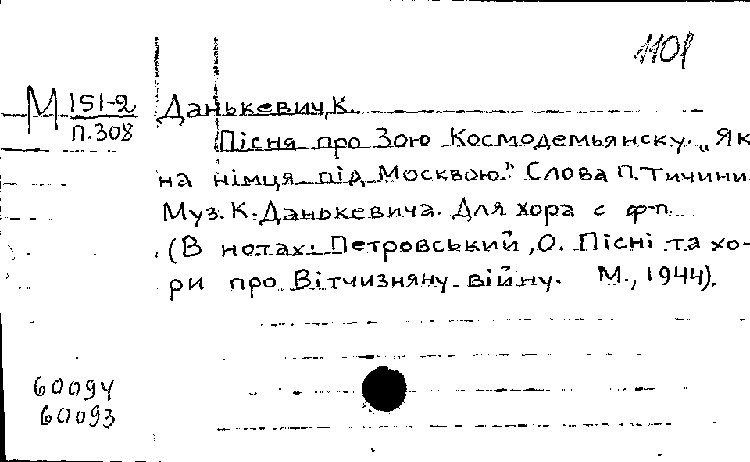 1101
М 151-2 Данькевич, К.
П.308
Пісня про Зою Космодемьянску. „Як
на німця під Москвою." Слова П. Тичини.
Муз. К. Данькевича. Для хора с ф-п.
(В нотах: Петровський, О. Пісні та хо-
ри про Вітчизняну війну. М., 1944).
60094
60093